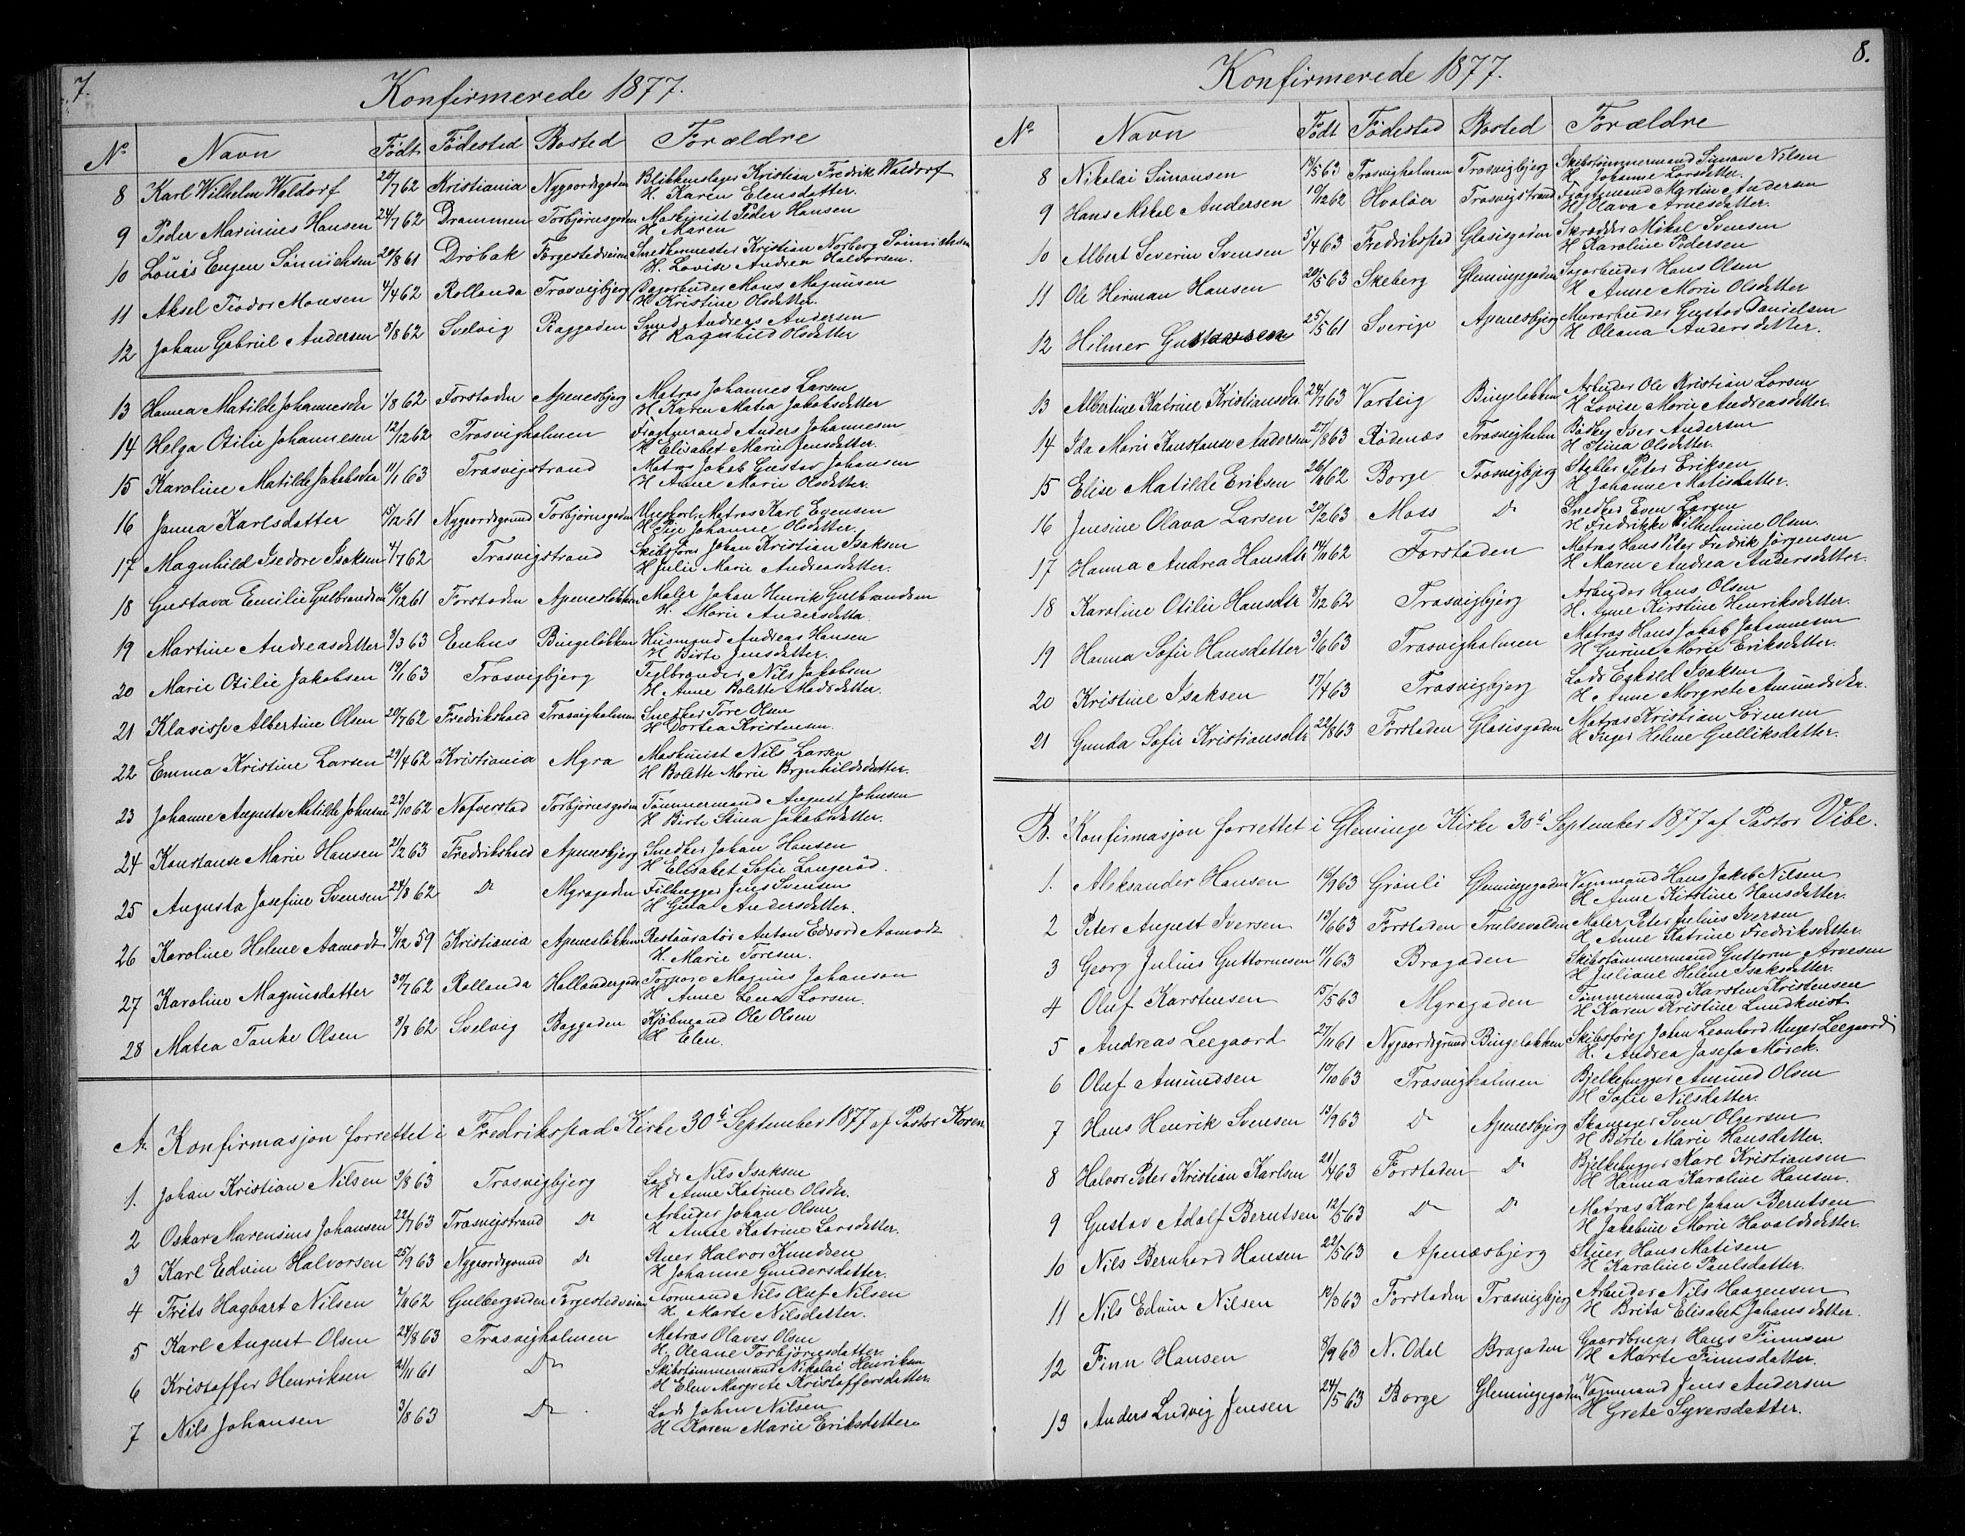 7.
Konfirmerede 1877.
No Navn Födt Födested Bosted Forældre
8 Karl Wilhelm Waldorf 20/7 62 Kristiania Nygaardsgaden Blikkenslager Kristian Fredrik Waldorf
H. Karen Elensdatter.
9 Peder Marinius Hansen 24/7 62 Drammen Torbjørnsgaden Maskinist Peder Hansen
H Maren
10 Louis Eugen Sönnichsen 20/8 61 Dröbak Forgestedveien Snedkermester Kristian Norberg Sönnichsen
H. Lovise Andrea Haldorsen.
11 Aksel Teodor Monsen 4/4 62 Rollanda Trosvigbjerg Sagarbeider Mons Magnusen
H Kristine Olsdatter.
12 Johan Gabriel Andersen 8/8 62 Svelvig Baggaden Smed Andreas Andersen
H Ragnhild Olsdatter
13 Hanna Matilde Johannesdtr 1/8 62 Forstaden Apenesbjerg Matros Johannes Larsen
H Karen Matea Jakobsdatter
14 Helga Otilie Johannesen 12/12 62 Trosvigholmen Fragtmand Anders Johannesen
H Elisabet Marie Jensdatter.
15 Karoline Matilde Jakobsdtr 11/1 63 Trosvigstrand Matros Jakob Gustav Johansen
H. Anne Marie Olsdatter.
16 Janna Karlsdatter 15/12 61 Nygaardsgrund Torbjørnsgaden Ungkarl, Matros Karl Evensen
H Pige Johanne Olsdatter.
17 Magnhild Isedore Isaksen 4/7 62 Trosvigstrand Skibsförer Johan Kristian Isaksen
H Julie Marie Andreasdatter.
18 Gustava Emilie Gulbrandsen 10/12 61 Forstaden Apenesløkken Maler Johan Henrik Gulbrandsen
H. Marie Andersdatter.
19 Martine Andreasdatter 9/3 63 Enhus Bingeløkken Husmand Andreas Hansen
H Birte Jensdatter.
20 Marie Otilie Jakobsen 19/1 63 Trosvigbjerg Teglbrænder Nils Jakobsen
H Anne Bolette Madsdatter.
21 Klasisse Albertine Olsen 20/7 62 Fredrikshald Trosvigholmen Snedker Tore Olsen
H Dortea Kristensen.
22 Emma Kristine Larsen 29/4 62 Kristiania Myra Maskinist Nils Larsen
H Bolette Marie Brynhildsdatter.
23 Johanne Augusta Matilde Johnsen 23/10 62 Nafverstad Torbjørnsgaden Tømmermand August Johnsen
H Birte Stina Jakobsdatter.
24 Konstanse Marie Hansen 21/2 63 Fredrikshald Apenesbjerg Snedker Johan Hansen
H Elisabet Sofie Langeröd.
25 Augusta Josefine Svensen 24/8 62 Do Myragaden Filhugger Jens Svensen
H Guta Andersdatter.
26 Karoline Helene Aamodt 4/12 59 Kristiania Apenesløkken Restauratør Anton Edvard Aamodt
H. Marie Toresen.
27 Karoline Magnusdatter 30/7 62 Rollanda Hollandergaden Torpare Magnus Johanson
H Anne Lena Larsen.
28 Matea Tanke Olsen 8/8 62 Svelvig Baggaden Kjöbmand Ole Olsen
H Elen.
A. Konfirmasjon forrettet i Fredriksstad Kirke 30te September 1877 af Pastor Koren
1. Johan Kristian Nilsen 9/8 63 Trosvigbjerg Lods Nils Isaksen
H Anne Katrine Olsdtr.
2 Oskar Marensius Johansen 22/7 63 Trosvigstrand Do Arbeider Johan Olsen
H Anne Katrine Larsdatter.
3 Karl Edvin Halvorsen 25/9 63 Nygaardsgrund Do Stuer Halvor Knudsen
H Johanne Gundersdatter.
4 Frits Hagbart Nilsen 2/11 62 Gulbergsiden Forgestedveien Formand Nils Oluf Nilsen
H. Marte Nilsdatter.
5 Karl August Olsen 24/8 63 Trosvigholmen Matros Olaves Olsen
H. Oleane Torbjörnsdatter.
6 Kristoffer Henriksen 21/11 61 Do Skibstömmermand Nikolai Henriksen
H Elen Margrete Kristoffersdatter.
7 Nils Johansen 3/8 63 Do Lods Johan Nilsen
H Karen Marie Eriksdatter.
8.
Konfirmerede 1877.
No Navn Födt Födested Bosted Forældre
8 Nikolai Simonsen 14/5 63 Trosvigholmen Trosvigbjerg Skibstömmermand Simon Nilsen
H. Johanne Larsdatter.
9 Hans Mikal Andersen 10/12 62 Hvalöer Trosvigstrand Fragtmand Martin Andersen
H Olava Arnesdatter.
10 Albert Severin Svensen 5/4 63 Fredrikstad Glasisgaden Skrædder Mikal Svensen
H Karoline Pedersen
11 Ole Herman Hansen 20/5 63 Skeberg Glemingegaden Sagarbeider Hans Olsen
H Anne Marie Olsdatter
12 Hilmer Gustavsen 25/5 61 Sverige Apenesbjerg Murarbeider Gustav Danielsen
H Oleana Andersdatter.
13 Albertine Katrine Kristiansdtr. 24/7 63 Varteig Bingeløkken Arbeider Ole Kristian Larsen
H Lovise Marie Andreasdatter.
14 Ida Marie Konstanse Andersen 27/8 63 Rødenæs Trosvigholm Bödker Iver Andersen
H Stina Olsdatter.
15 Elise Matilde Eriksen 26/10 62 Borge Trosvigbjerg Stabler Peter Eriksen
H Johanne Matisdatter.
16 Jensine Olava Larsen 20/2 63 Moss Do Snedker Even Larsen
H Fredrikke Vilhelmine Olsen.
17 Hanna Andrea Hansdtr 14/11 62 Forstaden Matros Hans Peter Fredrik Jørgensen
H Maren Andrea Andersdatter.
18 Karoline Otilie Hansdtr 8/12 62 Trosvigbjerg Arbeider Hans Olsen
H. Anne Kirstine Henriksdatter.
19 Hanna Sofie Hansdatter 3/6 63 Trosvigholmen Matros Hans Jakob Johannesen
H Gurine Marie Eriksdatter.
20 Kristine Isaksen 17/4 63 Trosvigbjerg Lods Eskild Isaksen
H Anne Margrete Amundsdtr.
21 Gunda Sofie Kristiansdtr 22/8 63 Forstaden Glasisgaden Matros Kristian Sørensen
H Inger Helene Gulliksdatter.
B. Konfirmasjon forrettet i Gleminge Kirke 30te September 1877 af Pastor Vibe.
1. Aleksander Hansen 16/9 63 Grönli Glemingegaden Vognmand Hans Jakob Nilsen
H Anne Kirstine Hansdatter.
2 Peter August Iversen 13/6 63 Forstaden Trulsevolden Maler Peter Julius Iversen
H Anne Katrine Fredriksdatter.
3 Georg Julius Guttormsen 11/1 63 Bragaden Skibstømmermand Guttorm Arvesen
H Juliane Helene Isaksdatter.
4 Oluf Karstensen 15/5 63 Myragaden Tømmermand Karsten Kristensen
H Karen Kristine Lundkvist
5 Andreas Leegaard 27/11 61 Nygaardsgrund Bingeløkken Skibsförer Johan Leonhard Leegaard
H. Andrea Josefa Mörck.
6 Oluf Amundsen 19/10 63 Trosvigholmen Bjelkehugger Amund Olsen
H Sofie Nilsdatter.
7 Hans Henrik Svensen 13/9 63 Do Apenesbjerg Skomager Sven Olgersen
H Birte Marie Hansdatter.
8 Halvor Peter Kristian Karlsen 21/4 63 Forstaden Do Bjelkehugger Karl Kristiansen
H Hanna Karoline Hansen.
9 Gustav Adolf Berntsen 12/5 63 Do Do Matros Karl Johan Berntsen
H Jakobine Marie Havaldsdatter.
10 Nils Bernhard Hansen 22/5 63 Apenæsbjerg Stuer Hans Matisen
H Karoline Paulsdatter.
11 Nils Edvin Nilsen 10/3 63 Forstaden Trosvigbjerg Arbeider Nils Haagensen
H Brita Elisabet Johansdatter.
12 Finn Hansen 8/9 63 N. Odal Bragaden Gaardbruger Hans Finnsen
H Marte Finnsdatter.
13 Anders Ludvig Jensen 24/5 63 Borge Glemingegaden Vognmand Jens Andersen
H Grete Syversdatter.